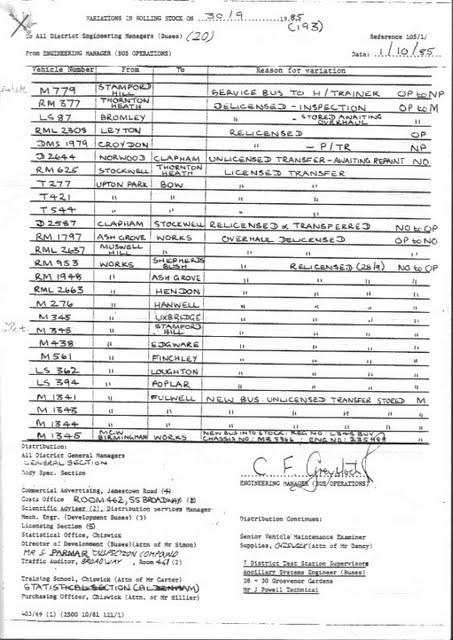 VARIATIONS IN ROLLING STOCK ON 30/9 1985
(193)
To All District Engineering Managers (Buses) (20)
Reference 105/1/
From ENGINEERING MANAGER (BUS OPERATIONS)
Date: 1/10/85
Vehicle Number From To Reason for variation
M 779 STAMFORD HILL SERVICE BUS TO H/TRAINER OP to NP
RM 377 THORNTON HEATH DELICENSED - INSPECTION OP to M
LS 87 BROMLEY " - STORED AWAITING OVERHAUL "
RML 2308 LEYTON RELICENSED OP
DMS 1979 CROYDON " - P/TR NP
D 2644 NORWOOD CLAPHAM UNLICENSED TRANSFER - AWAITING REPAINT NO
RM 625 STOCKWELL THORNTON HEATH LICENSED TRANSFER
T 277 UPTON PARK BOW "
T 421 " " "
T 544 " " "
D 2587 CLAPHAM STOCKWELL RELICENSED & TRANSFERRED NO to OP
RM 1797 ASH GROVE WORKS OVERHAUL DELICENSED OP to NO
RML 2637 MUSWELL HILL " " "
RM 953 WORKS SHEPHERDS BUSH " RELICENSED (28/9) NO to OP
RM 1948 " ASH GROVE " " "
RML 2663 " HENDON " " "
M 276 " HANWELL " " "
M 345 " UXBRIDGE " " "
M 348 " STAMFORD HILL " " "
M 438 " EDGWARE " " "
M 561 " FINCHLEY " " "
LS 362 " LOUGHTON " " "
LS 394 " POPLAR " " "
M 1341 " FULWELL NEW BUS UNLICENSED TRANSFER STORED M
M 1343 " " " " " "
M 1344 " " " " " "
M 1345 MCW BIRMINGHAM WORKS NEW BUS INTO STOCK: REG NO: C345 BUV
CHASSIS NO: MB ENG NO:
Distribution:
All District General Managers
GENERAL SECTION
Body Spec. Section
ENGINEERING MANAGER (BUS OPERATIONS)
Commercial Advertising, Jamestown Road (4)
Costs Office ROOM 462, 55 BROADWAY
Scientific Adviser (2), Distribution services Manager
Mech. Engr. (Development Buses) (3)
Licensing Section (5)
Statistical Office, Chiswick
Director of Development (Buses)(Attn of Mr Simon)
MR S PARMAR INSPECTION COMPOUND
Traffic Auditor, BROADWAY, Room 461 (2)
Training School, Chiswick (Attn of Mr Carter)
STATISTICAL SECTION (ALDENHAM)
Purchasing Officer, Chiswick (Attn of Mr Hillier)
Distribution Continues:
Senior Vehicle Maintenance Examiner
Supplies, CHISWICK (Attn of Mr Dancy)
7 District Test Station Supervisors
Ancillary Systems Engineer (Buses)
28 - 30 Grosvenor Gardens
Mr J Powell Technical
403/69 (1) (2500 10/81 121/1)